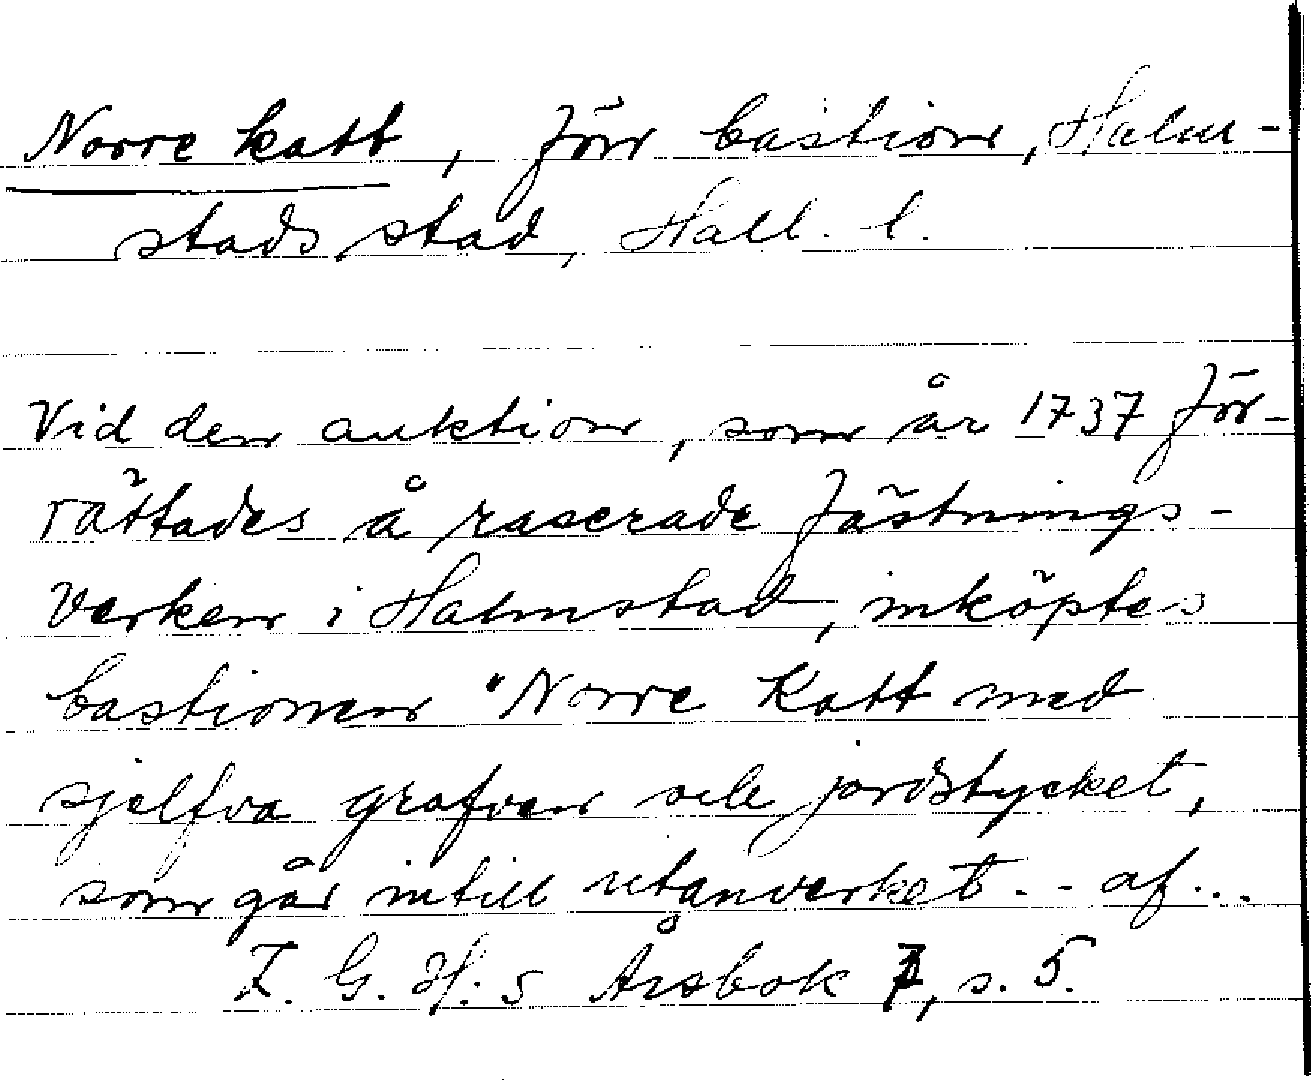 Norre katt, förr bastion, Halm-
stads stad, Hall. l.
Vid den auktion, som år 1737 för-
rättades å raserade fästnings-
verken i Halmstad, inköptes
bastionen "Norre Katt med
sjelfva grafven och jordstycket,
som går intill utanverket - - af...
F. G. H:s Årsbok 7, s. 5.